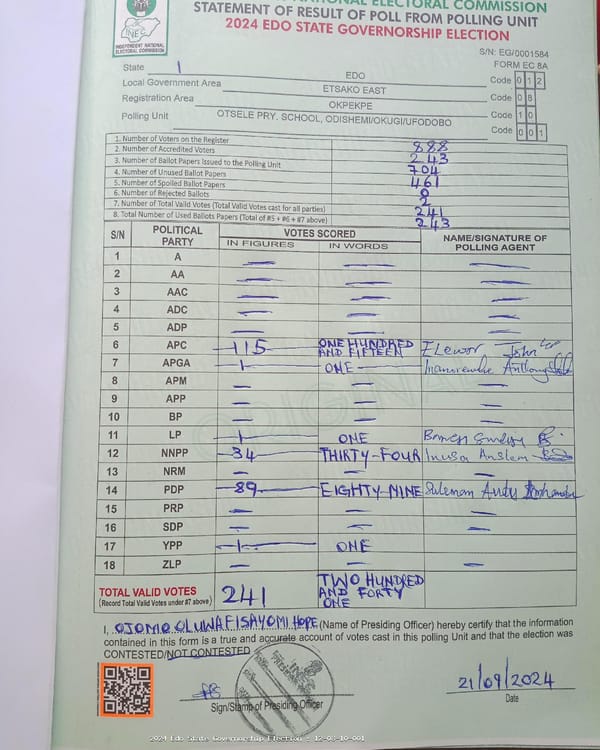 INEC
INDEPENDENT NATIONAL ELECTORAL COMMISSION
NATIONAL ELECTORAL COMMISSION
STATEMENT OF RESULT OF POLL FROM POLLING UNIT
2024 EDO STATE GOVERNORSHIP ELECTION
S/N: EG/0001584
FORM EC 8A
State EDO Code 0 1 2
Local Government Area ETSAKO EAST Code 0 8
Registration Area OKPEKPE Code 1 0
Polling Unit OTSELE PRY. SCHOOL, ODISHEMI/OKUGI/UFODOBO Code 0 0 1
1. Number of Voters on the Register 888
2. Number of Accredited Voters 243
3. Number of Ballot Papers Issued to the Polling Unit 704
4. Number of Unused Ballot Papers 461
5. Number of Spoiled Ballot Papers 0
6. Number of Rejected Ballots 2
7. Number of Total Valid Votes (Total Valid Votes cast for all parties) 241
8. Total Number of Used Ballots Papers (Total of #5 + #6 + #7 above) 243
S/N POLITICAL PARTY VOTES SCORED NAME/SIGNATURE OF POLLING AGENT
IN FIGURES IN WORDS
1 A — — —
2 AA — — —
3 AAC — — —
4 ADC — — —
5 ADP — — —
6 APC 115 ONE HUNDRED AND FIFTEEN John
7 APGA 1 ONE Anthony
8 APM — — —
9 APP — — —
10 BP — — —
11 LP 1 ONE
12 NNPP 34 THIRTY-FOUR Inusa Anslem
13 NRM — — —
14 PDP 89 EIGHTY-NINE Suleman Andy
15 PRP — — —
16 SDP — — —
17 YPP 1 ONE
18 ZLP — — —
TOTAL VALID VOTES 241 TWO HUNDRED AND FORTY ONE
(Record Total Valid Votes under #7 above)
I, OJOMO OLUWAFISAYOMI HOPE (Name of Presiding Officer) hereby certify that the information
contained in this form is a true and accurate account of votes cast in this polling Unit and that the election was
CONTESTED/NOT CONTESTED
21/09/2024
Sign/Stamp of Presiding Officer Date
2024 Edo State Governorship Election - 12-08-10-001